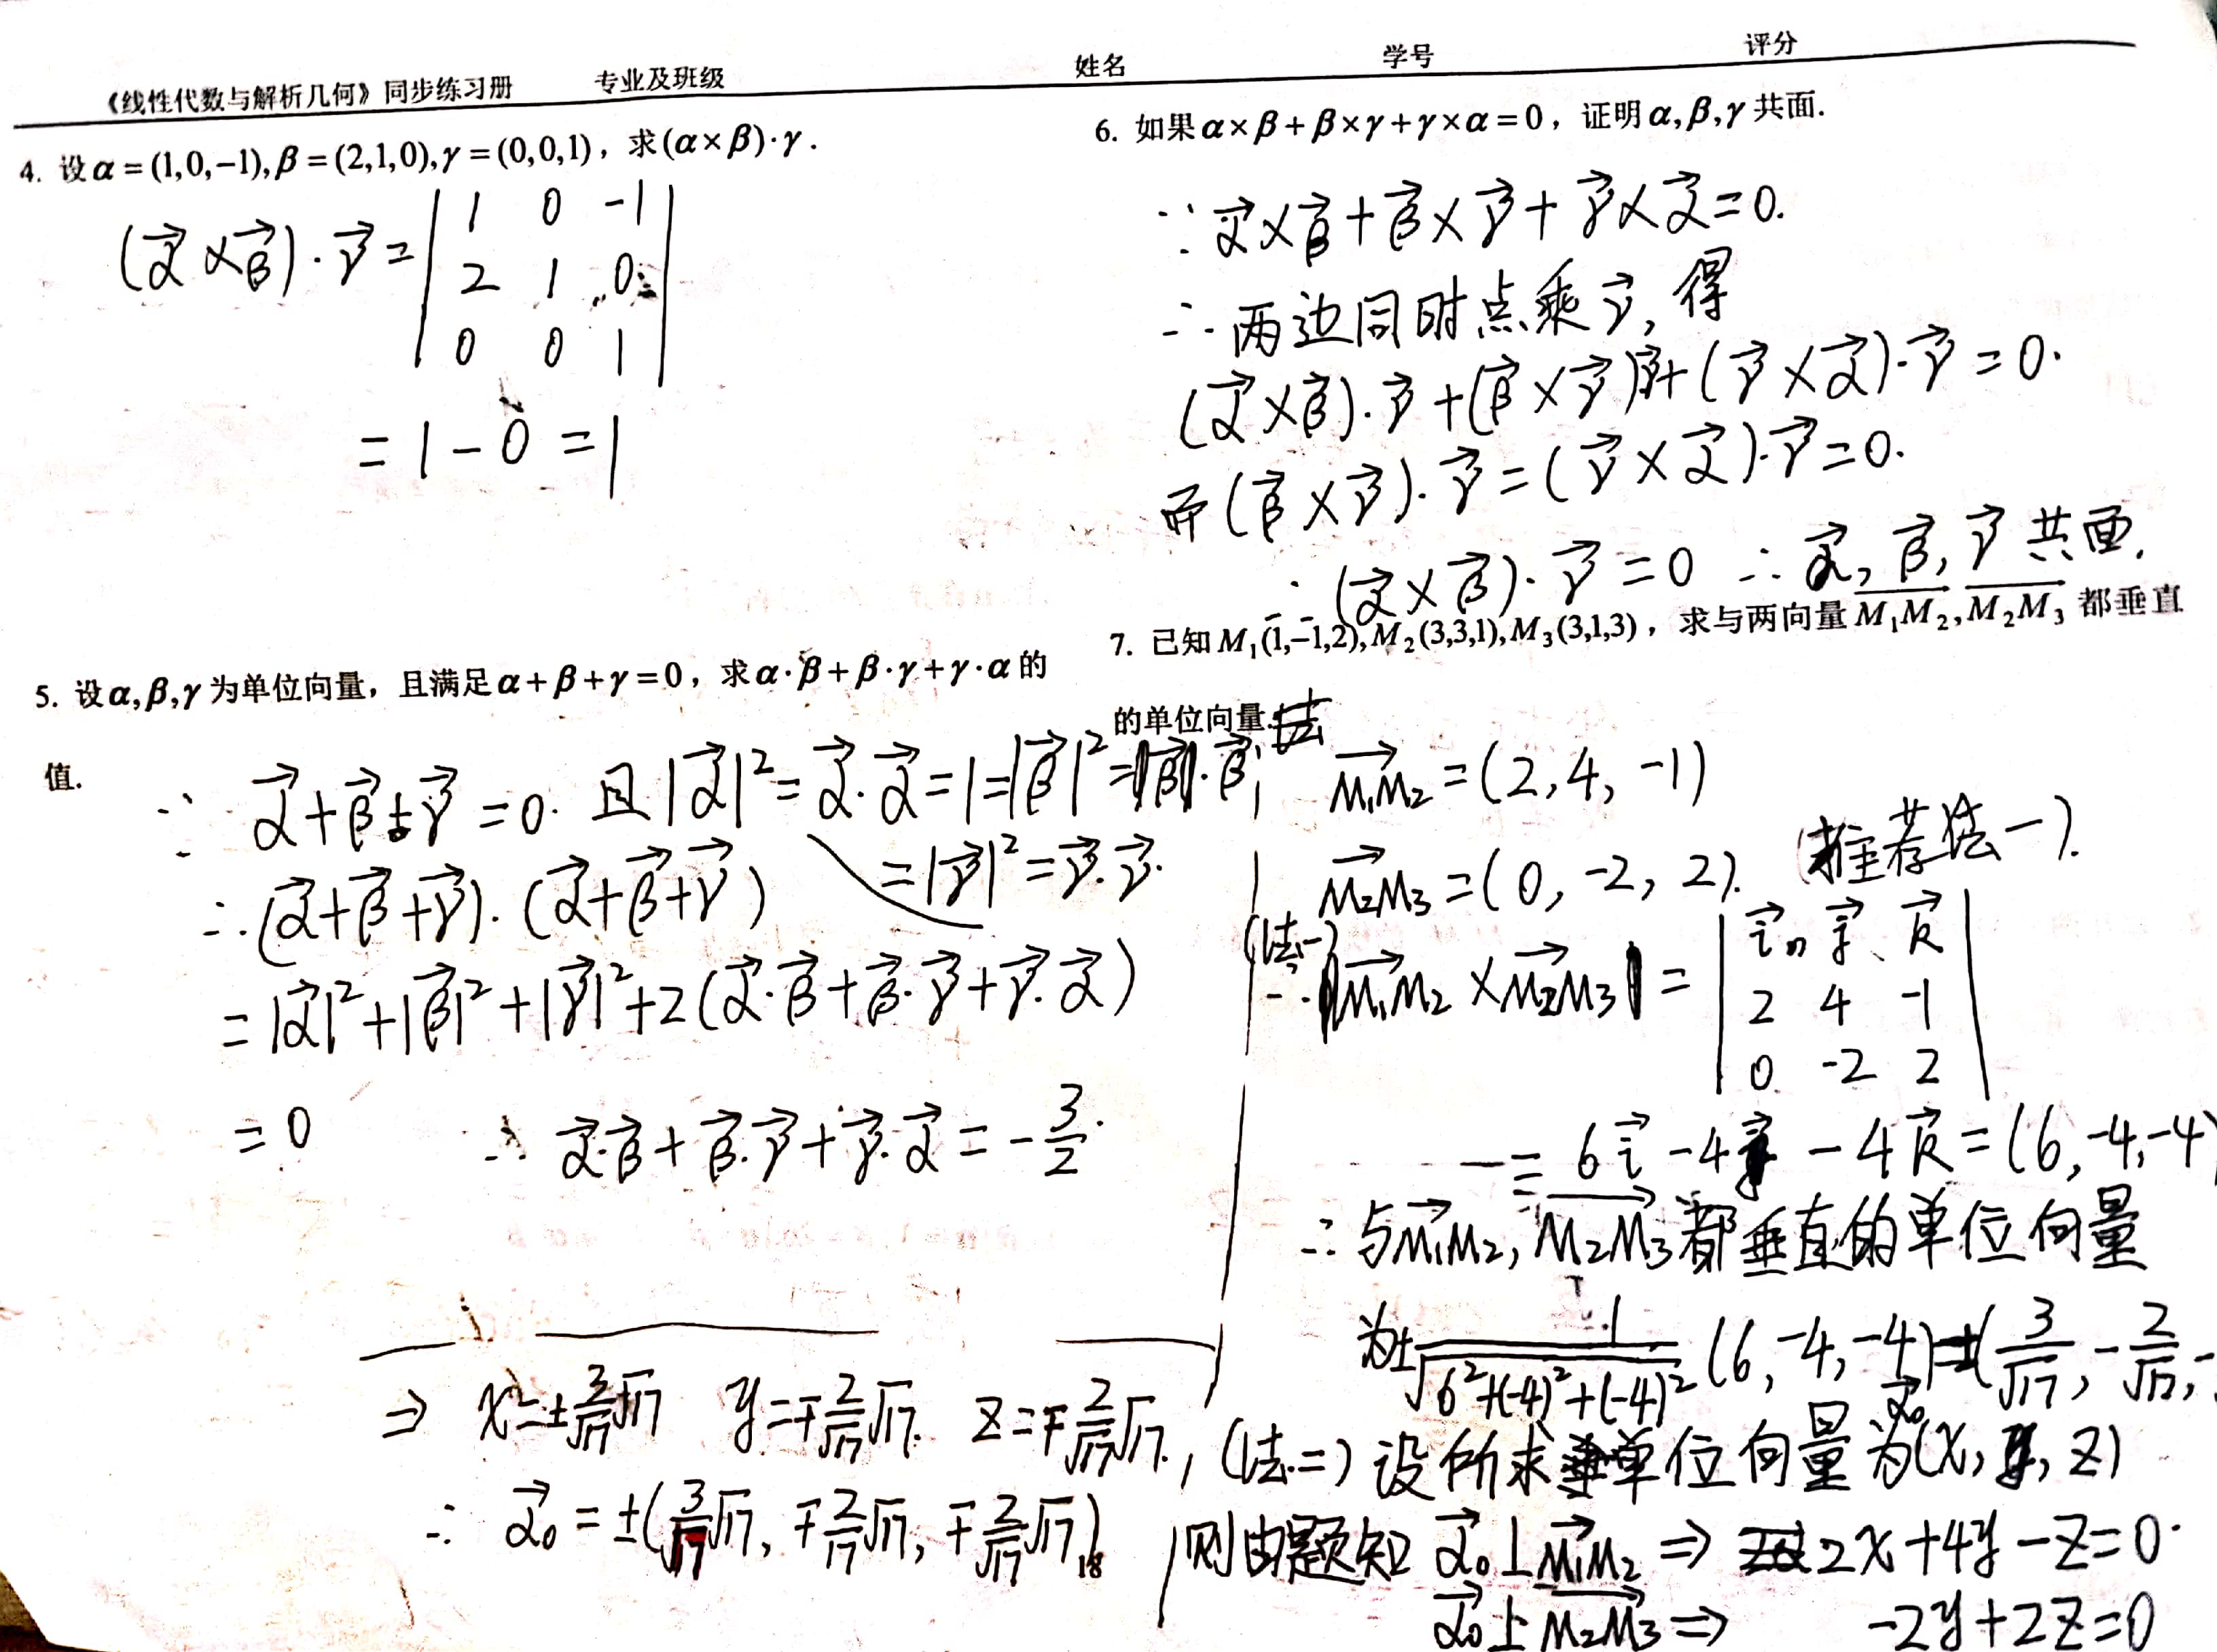 《线性代数与解析几何》同步练习册 专业及班级 姓名 学号 评分
4. 设α=(1,0,−1),β=(2,1,0),γ=(0,0,1),求(α×β)·γ.
(α⃗×β⃗)·γ⃗=|1 0 -1|
|2 1 0|
|0 0 1|
=1-0=1
5. 设α,β,γ为单位向量,且满足α+β+γ=0,求α·β+β·γ+γ·α的
值.
∵ α⃗+β⃗+γ⃗=0. 且|α⃗|²=α⃗·α⃗=1=|β⃗|²=β⃗·β⃗
=|γ⃗|²=γ⃗·γ⃗.
∴(α⃗+β⃗+γ⃗)·(α⃗+β⃗+γ⃗)
=|α⃗|²+|β⃗|²+|γ⃗|²+2(α⃗·β⃗+β⃗·γ⃗+γ⃗·α⃗)
=0 ∴ α⃗·β⃗+β⃗·γ⃗+γ⃗·α⃗=-3/2.
6. 如果α×β+β×γ+γ×α=0,证明α,β,γ共面.
∵α⃗×β⃗+β⃗×γ⃗+γ⃗×α⃗=0.
∴两边同时点乘γ⃗,得
(α⃗×β⃗)·γ⃗+(β⃗×γ⃗)·γ⃗+(γ⃗×α⃗)·γ⃗=0.
而(β⃗×γ⃗)·γ⃗=(γ⃗×α⃗)·γ⃗=0.
∴(α⃗×β⃗)·γ⃗=0 ∴α⃗,β⃗,γ⃗共面.
7. 已知M₁(1,−1,2),M₂(3,3,1),M₃(3,1,3),求与两向量M₁M₂,M₂M₃都垂直
的单位向量.
M₁M₂=(2,4,-1)
M₂M₃=(0,-2,2). (推荐法一).
(法一)
∴M₁M₂×M₂M₃=|i⃗ j⃗ k⃗|
|2 4 -1|
|0 -2 2|
=6i⃗-4j⃗-4k⃗=(6,-4,-4)
∴与M₁M₂,M₂M₃都垂直的单位向量
为±1/√(6²+(-4)²+(-4)²)(6,-4,-4)=±(3/√17,-2/√17,-
(法二)设所求单位向量为α⃗₀(x,y,z)
则由题知 α⃗₀⊥M₁M₂⇒2x+4y-z=0.
α⃗₀⊥M₂M₃⇒ -2y+2z=0
⇒ x=±3/17√17 y=∓2/17√17. z=∓2/17√17.
∴ α⃗₀=±(3/17√17,∓2/17√17,∓2/17√17)
18